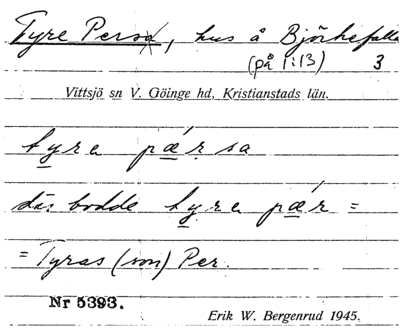 Tyre Persa, hus å Björkefalla
(på 1:13) 3
Vittsjö sn V. Göinge hd, Kristianstads län.
tyra pæ̀rsa
där bodde tyra pæ̀r =
= Tyras (son) Per.
Nr 5393.
Erik W. Bergenrud 1945.